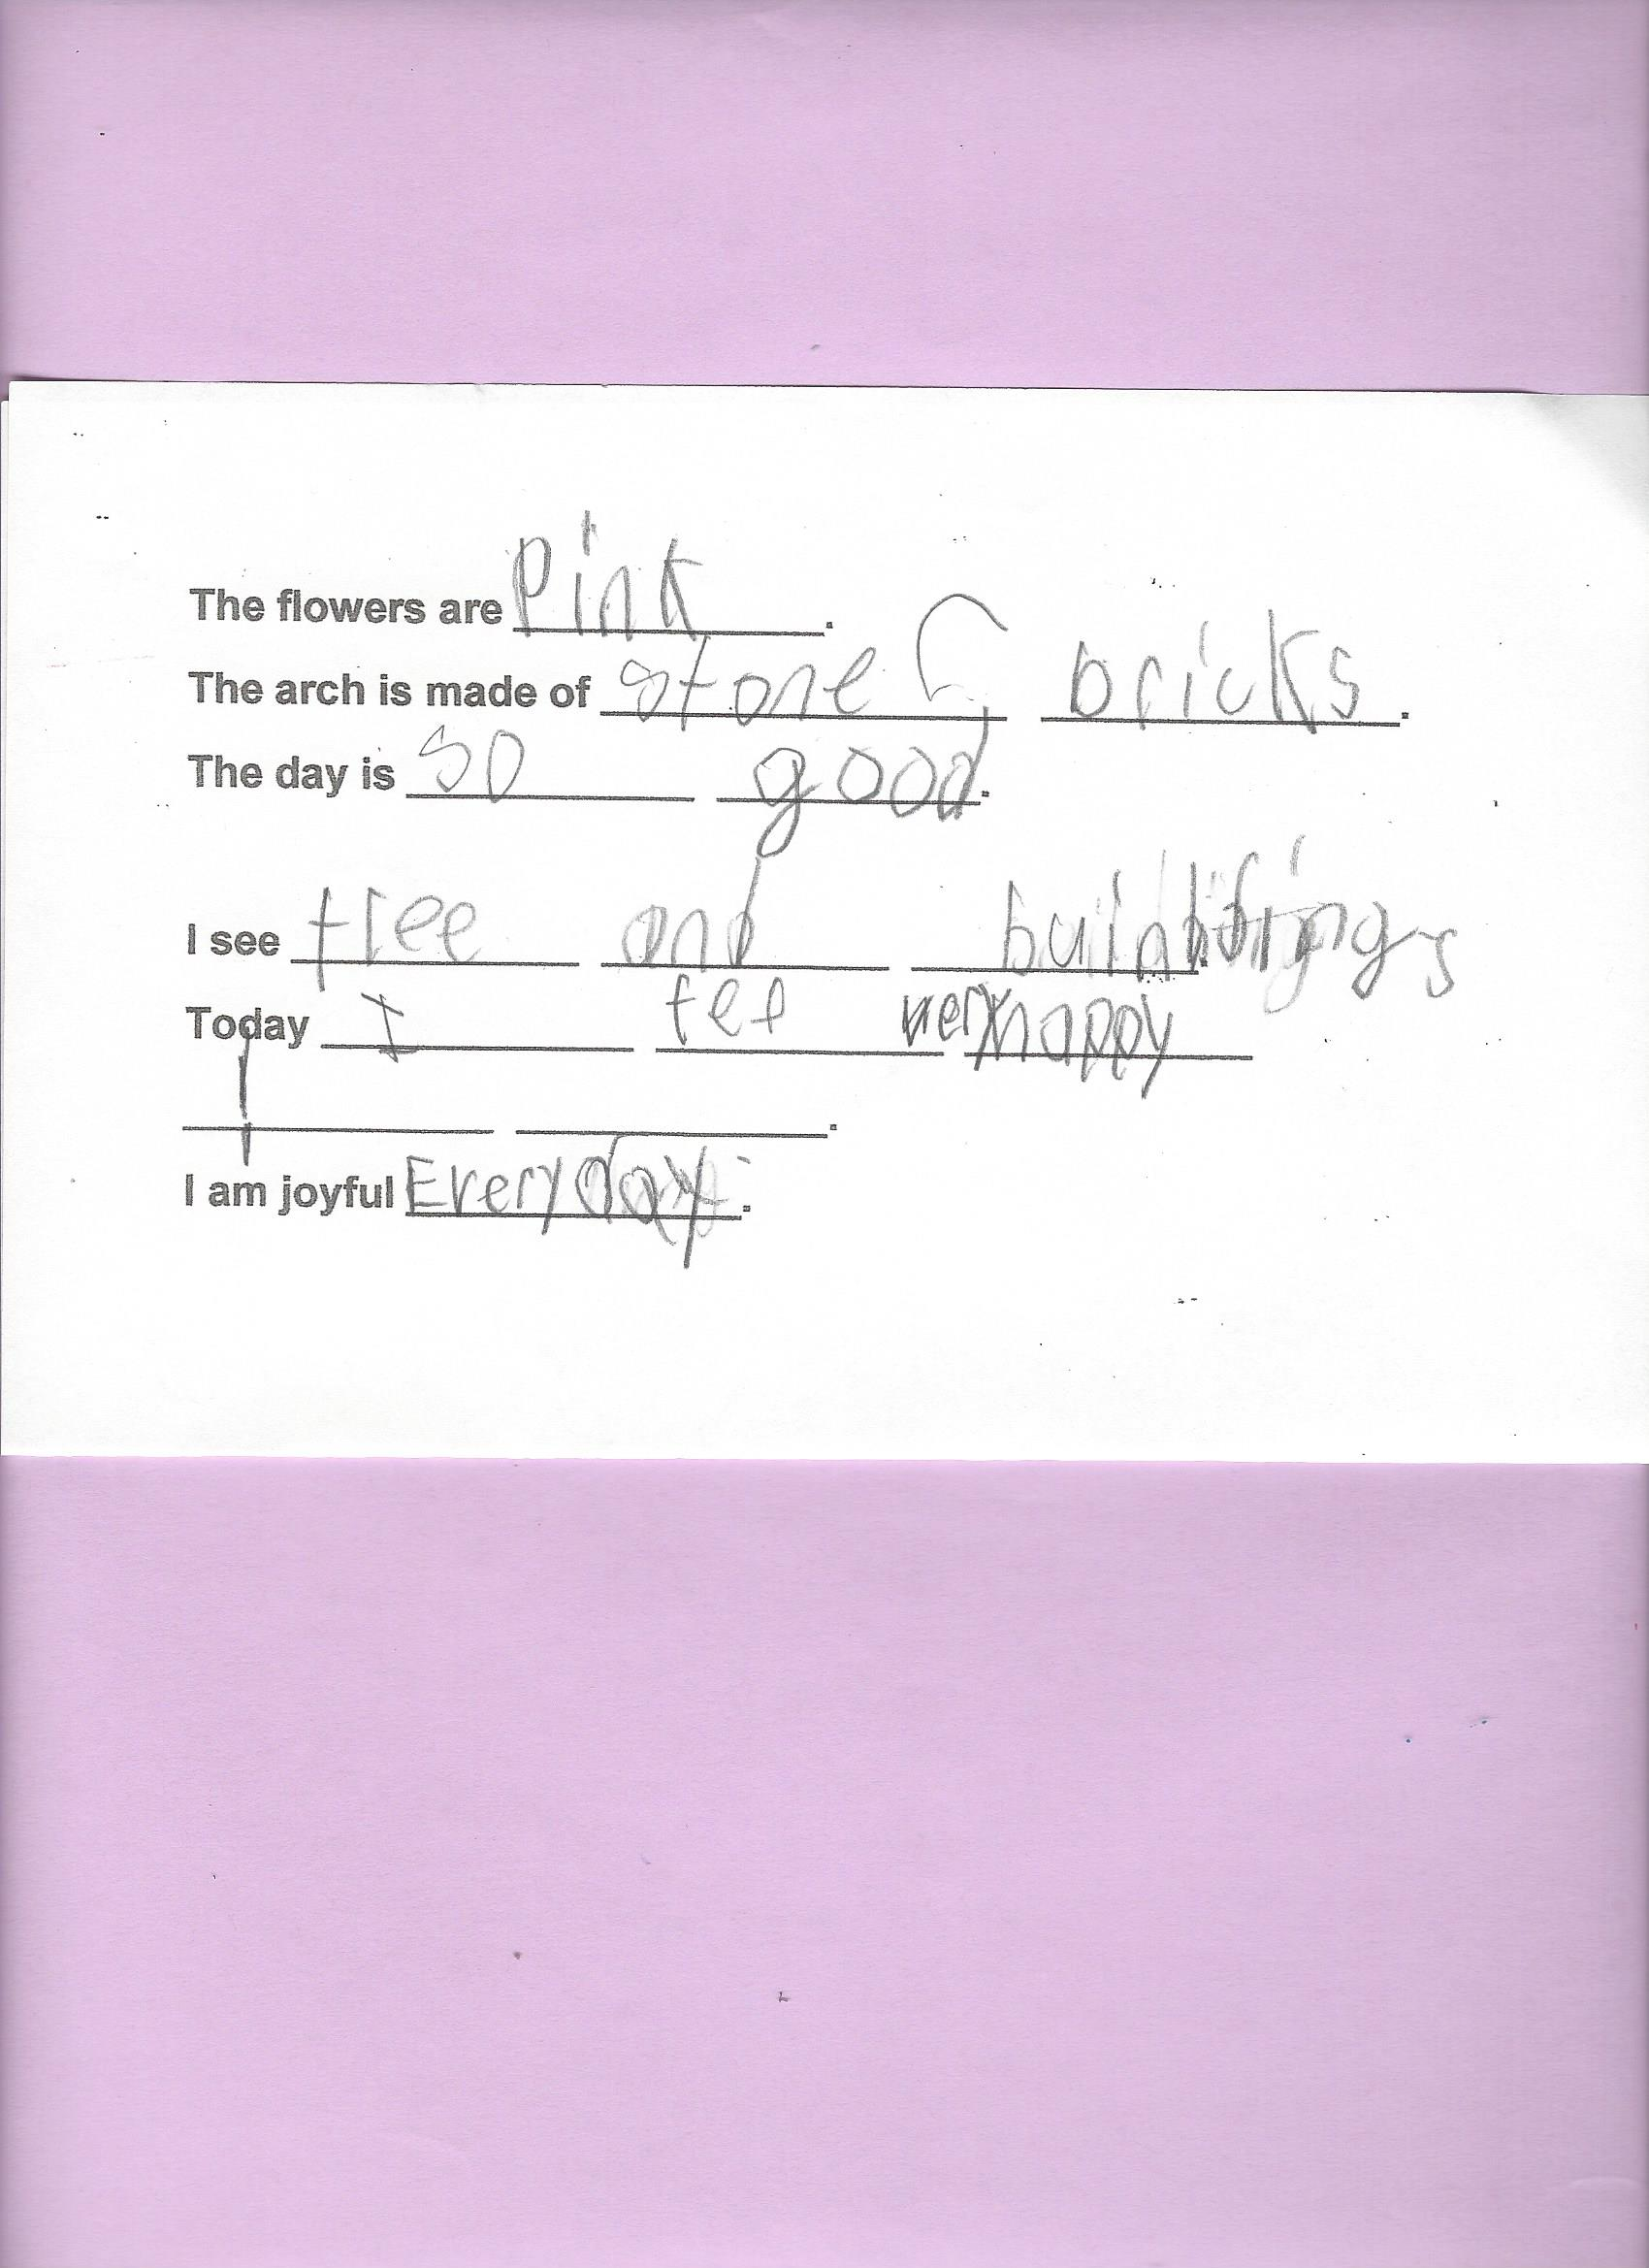 The flowers are Pink.
The arch is made of stone bricks.
The day is so good.
I see tree and buildings
Today I fel very happy
.
I am joyful Everyday.